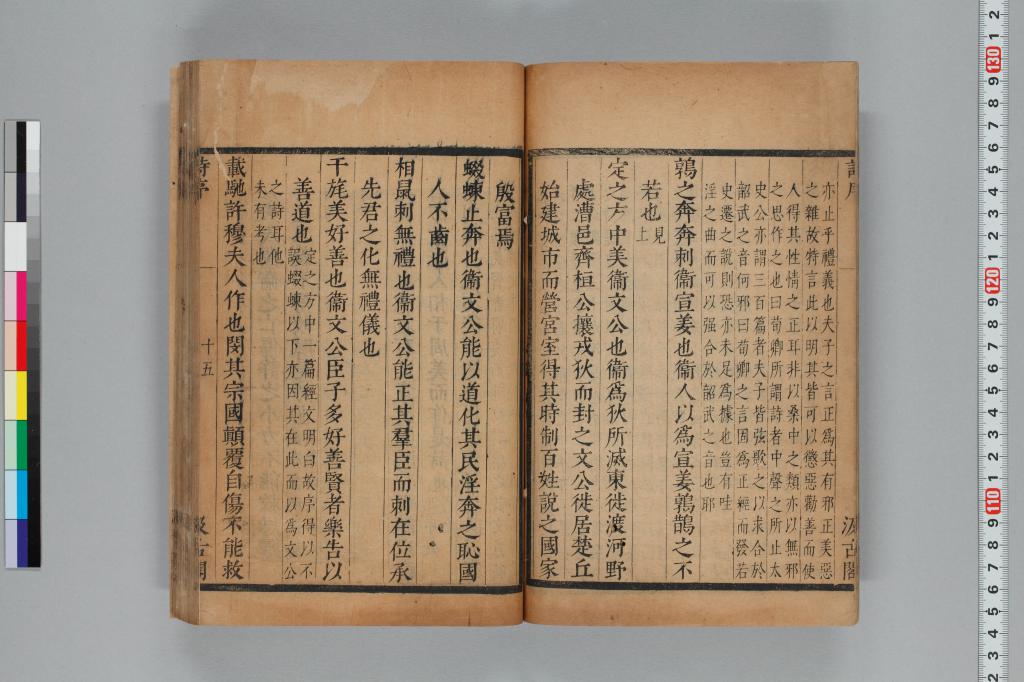 亦止乎禮義也夫子之言正爲其有邪正美惡
之雜故特言此以明其皆可以懲惡勸善而使
人得其性情之正耳非以桑中之類亦以無邪
之思作之也曰荀卿所謂詩者中聲之所止太
史公亦謂三百篇者夫子皆弦歌之以求合於
韶武之音何邪曰荀卿之言固爲正經而發若
史遷之說則恐亦未足爲據也豈有哇
淫之曲而可以强合於韶武之音也耶
鶉之奔奔刺衞宣姜也衞人以爲宣姜鶉鵲之不
若也見上
定之方中美衞文公也衞爲狄所滅東徙渡河野
處漕邑齊桓公攘戎狄而封之文公徙居楚丘
始建城市而營宮室得其時制百姓說之國家
殷富焉
蝃蝀止奔也衞文公能以道化其民淫奔之恥國
人不齒也
相鼠刺無禮也衞文公能正其羣臣而刺在位承
先君之化無禮儀也
干旄美好善也衞文公臣子多好善賢者樂告以
善道也定之方中一篇經文明白故序得以不
誤蝃蝀以下亦因其在此而以爲文公
之詩耳他
未有考也
載馳許穆夫人作也閔其宗國顚覆自傷不能救
詩序
十五
汲古閣